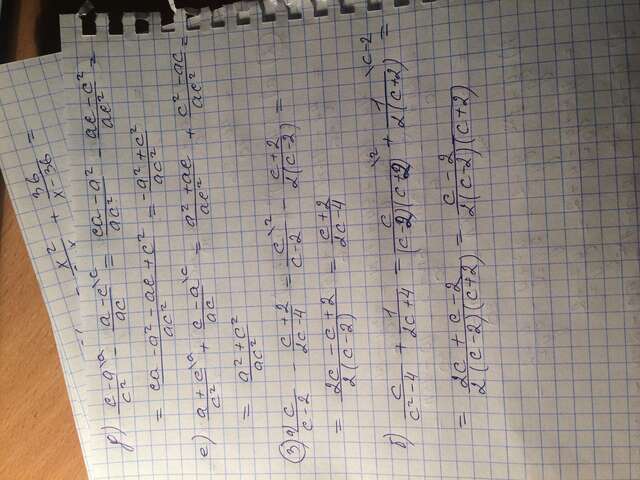 - x²/x + 36/(x-36) =
д) (c-a\a)/c² - (a-c\c)/ac = (ca-a²)/ac² - (ac-c²)/ac² =
= (ca-a²-ac+c²)/ac² = (-a²+c²)/ac²
е) (a+c\a)/c² + (c-a\c)/ac = (a²+ac)/ac² + (c²-ac)/ac² =
= (a²+c²)/ac²
③ а) c/(c-2) - (c+2)/(2c-4) = c\2/(c-2) - (c+2)/2(c-2) =
= (2c-c+2)/2(c-2) = (c+2)/(2c-4)
б) c/(c²-4) + 1/(2c+4) = c\2/(c-2)(c+2) + 1\c-2/2(c+2) =
= (2c+c-2)/2(c-2)(c+2) = (c-2)/2(c-2)(c+2)